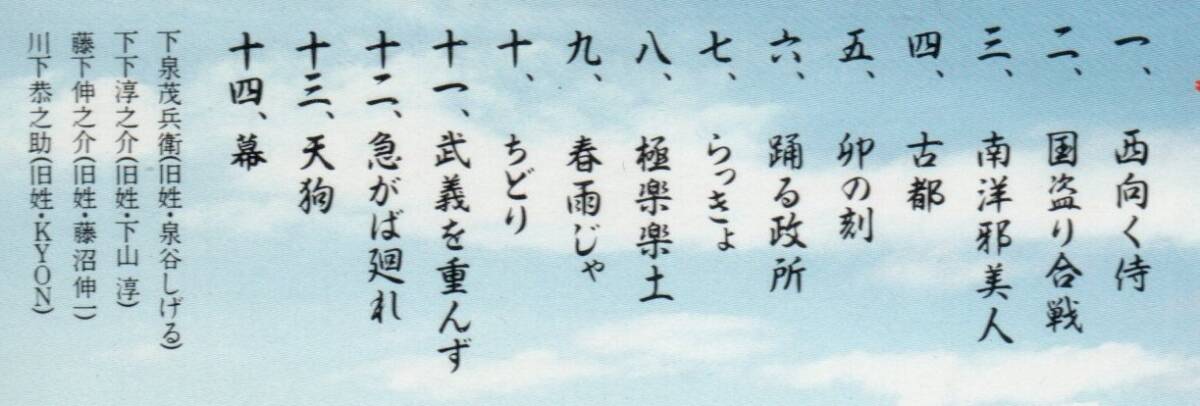 一、西向く侍
二、国盗り合戦
三、南洋邪美人
四、古都
五、卯の刻
六、踊る政所
七、らっきょ
八、極楽楽土
九、春雨じゃ
十、ちどり
十一、武義を重んず
十二、急がば廻れ
十三、天狗
十四、幕
下泉茂兵衛(旧姓・泉谷しげる)
下下淳之介(旧姓・下山 淳)
藤下伸之介(旧姓・藤沼伸一)
川下恭之助(旧姓・KYON)